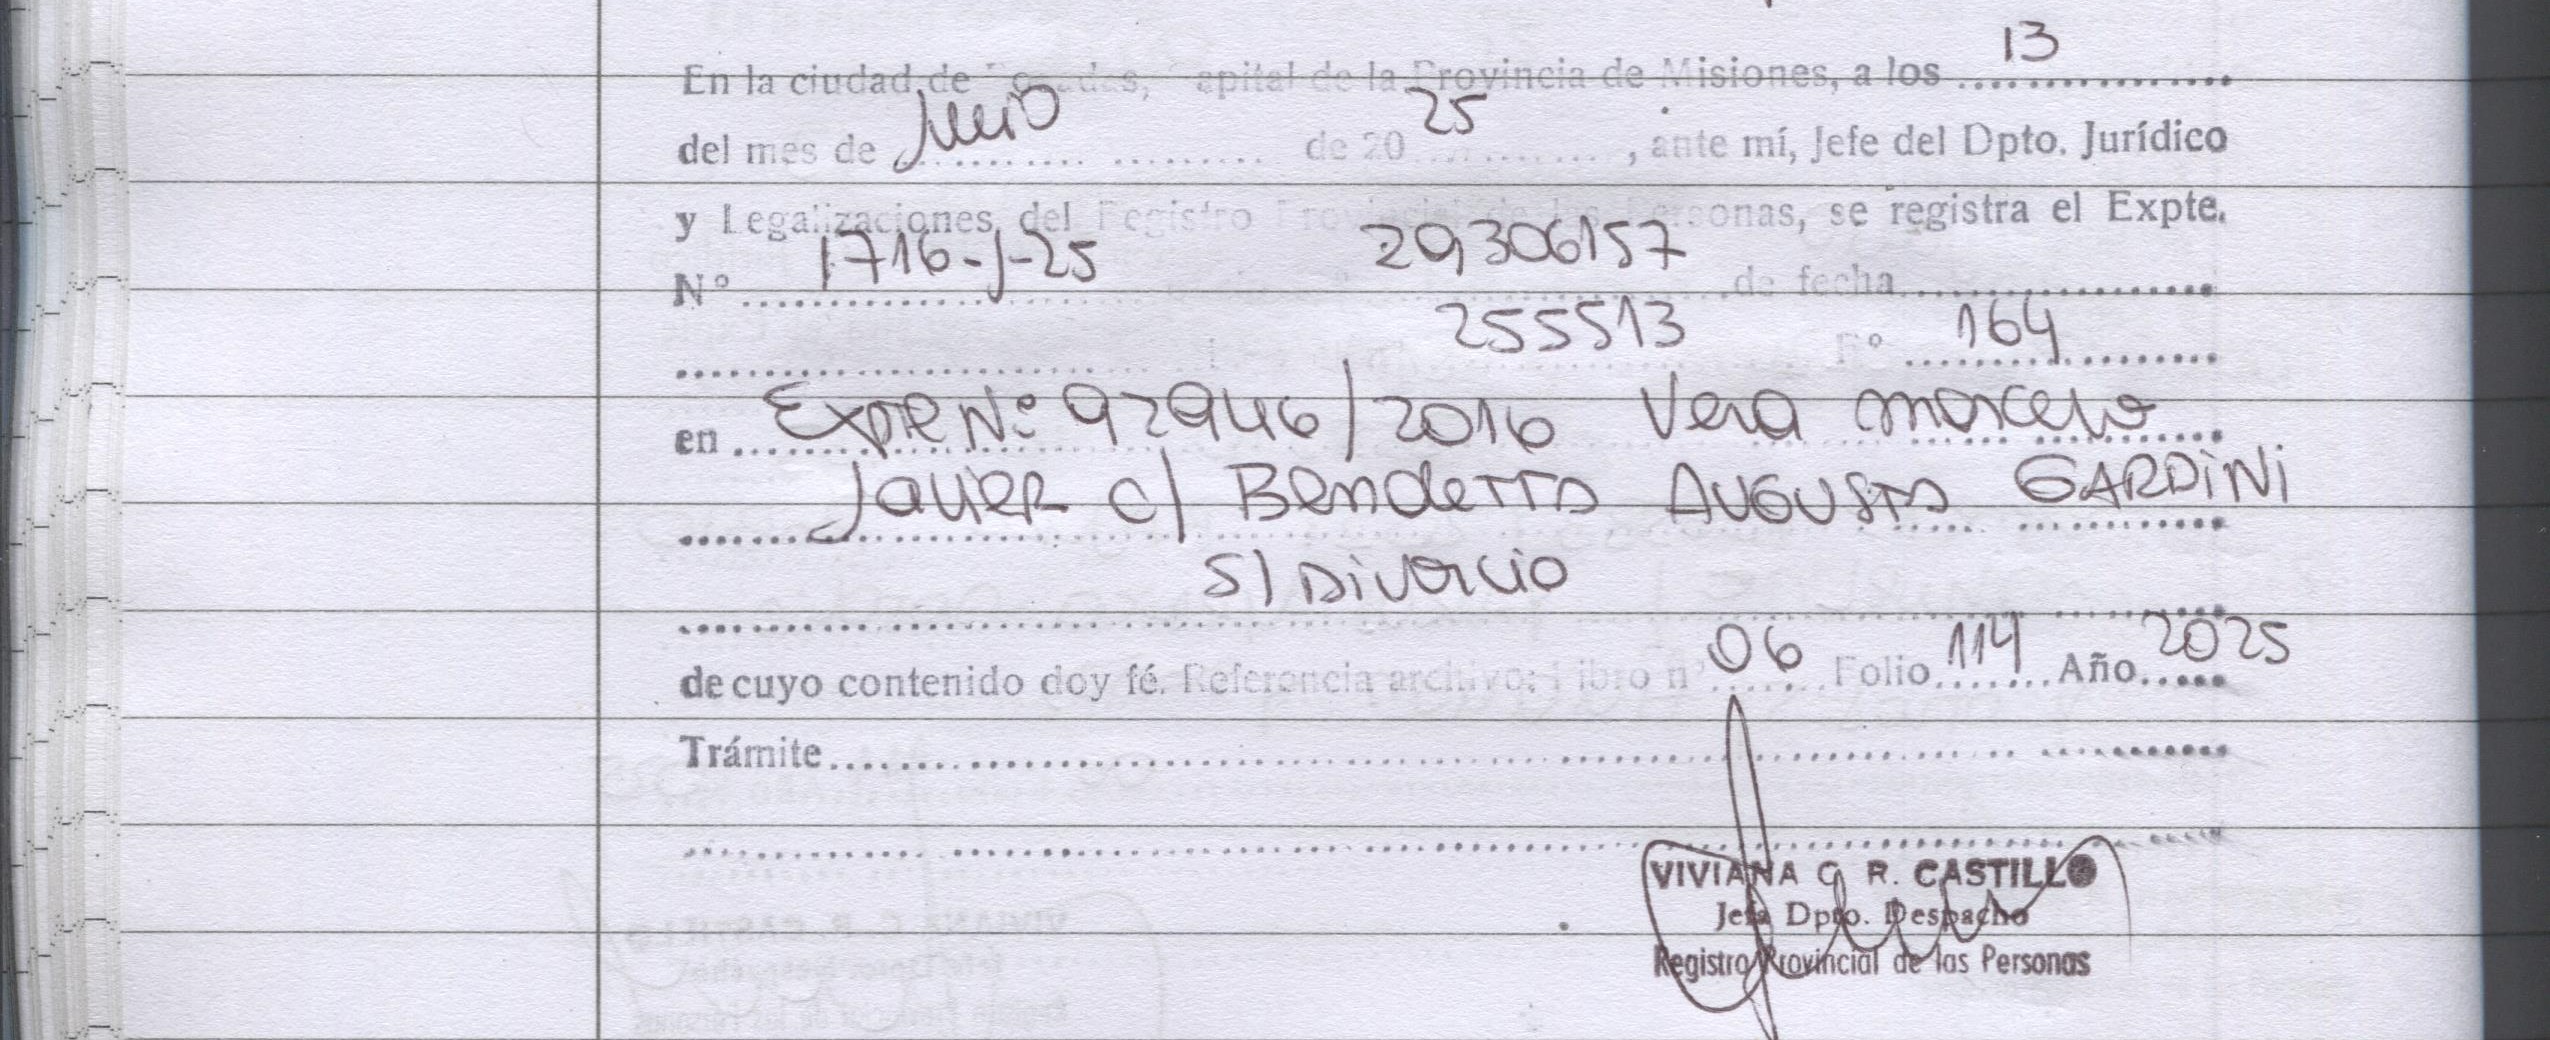 En la ciudad de Posadas, Capital de la Provincia de Misiones, a los 13
del mes de de 20 25, ante mí, Jefe del Dpto. Jurídico
y Legalizaciones del Registro Provincial de las Personas, se registra el Expte.
N° 1716-J-25 29306157 de fecha
255513 F° 164
en Expte N°: 92946/2016 Vera Marcelo
Javier c/ Bendetta Augusta GARDINI
S/ Divorcio
de cuyo contenido doy fé. Referencia archivo: Libro n° 06 Folio 114 Año 2025
Trámite
VIVIANA C. R. CASTILLO
Jefa Dpto. Despacho
Registro Provincial de las Personas